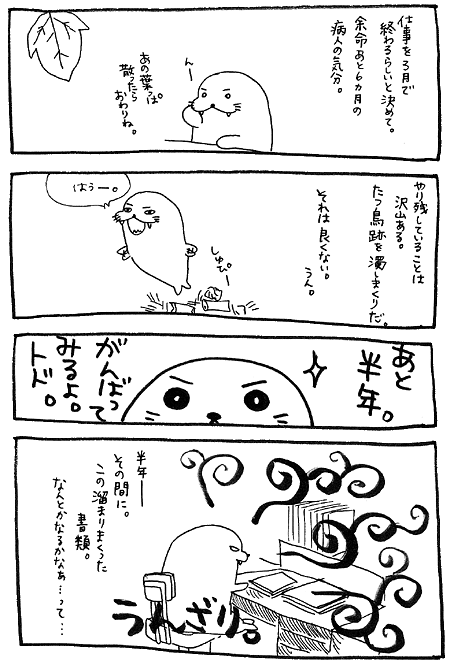 仕事を3月で
終わるらしいと決めて。
余命あと6ヵ月の
病人の気分。
んー
あの葉っぱ。
散ったら
おわりね。
やり残していることは
沢山ある。
たつ鳥跡を濁しまくりだ。
それは良くない。
うん。
しゅぴー
はぅー。
あと
半年。
がんばって
みるよ。
トド。
半年ー
その間に。
この溜まりまくった
書類。
なんとかなるかなぁ…って…
うんざり。